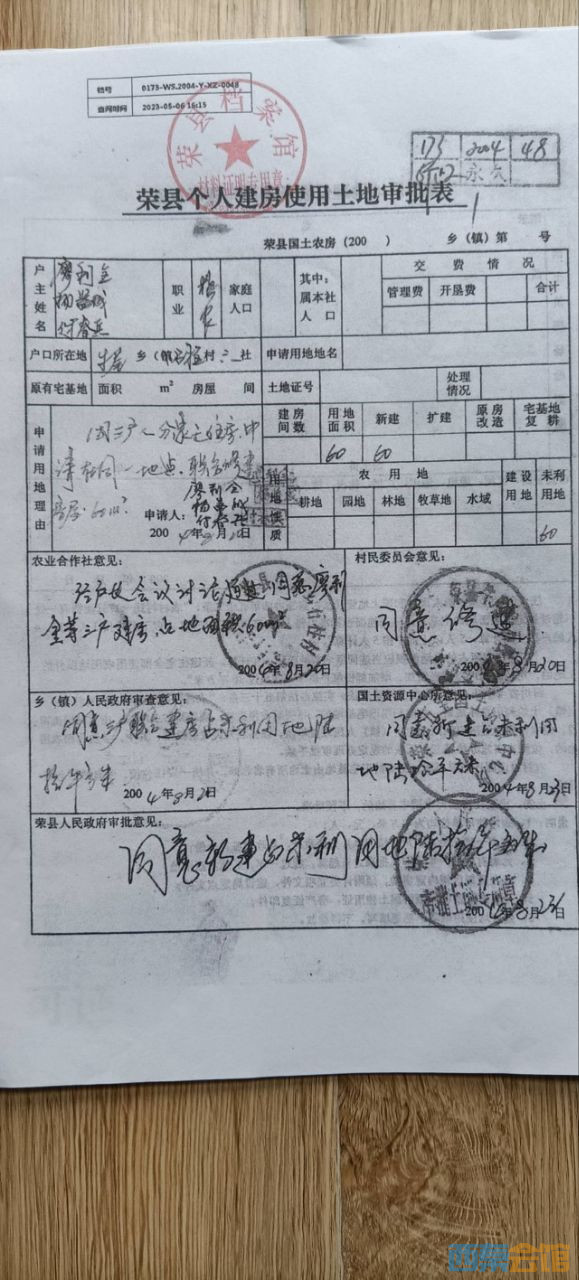 档号 0173-WS.2004-Y-XZ-0048
查阅时间 2023-05-06 16:15
荣县档案馆
材料证明专用章
173 2004 48
永久
荣县个人建房使用土地审批表
荣县国土农房(200 ) 乡(镇)第 号
户主姓名 廖利全
职业 农
家庭人口
其中:属本社人口
交费情况
管理费 开垦费 合计
户口所在地 乡(镇) 村 三 社 申请用地地名
原有宅基地 面积 m² 房屋 间 土地证号 处理情况
申请用地理由
因三户人分家无住房.申
请在同一地点.联合修建
住房.60m²
申请人:廖利全
2004年8月20日
建房间数 用地面积 新建 扩建 原房改造 宅基地复耕
60 60
用地性质
农用地 建设用地 未利用地
耕地 园地 林地 牧草地 水域
60
农业合作社意见:
经户代会议讨论通过.同意廖利
全等三户建房.占地面积60m²
2004年8月20日
村民委员会意见:
同意修建.
2004年8月20日
乡(镇)人民政府审查意见:
同意三户联合建房占未利用地陆
拾平方米
2004年8月21日
国土资源中心所意见:
同意新建占未利用
地陆拾平方米
2004年8月23日
荣县人民政府审批意见:
同意新建占未利用地陆拾平方米
2004年8月23日
西票会馆